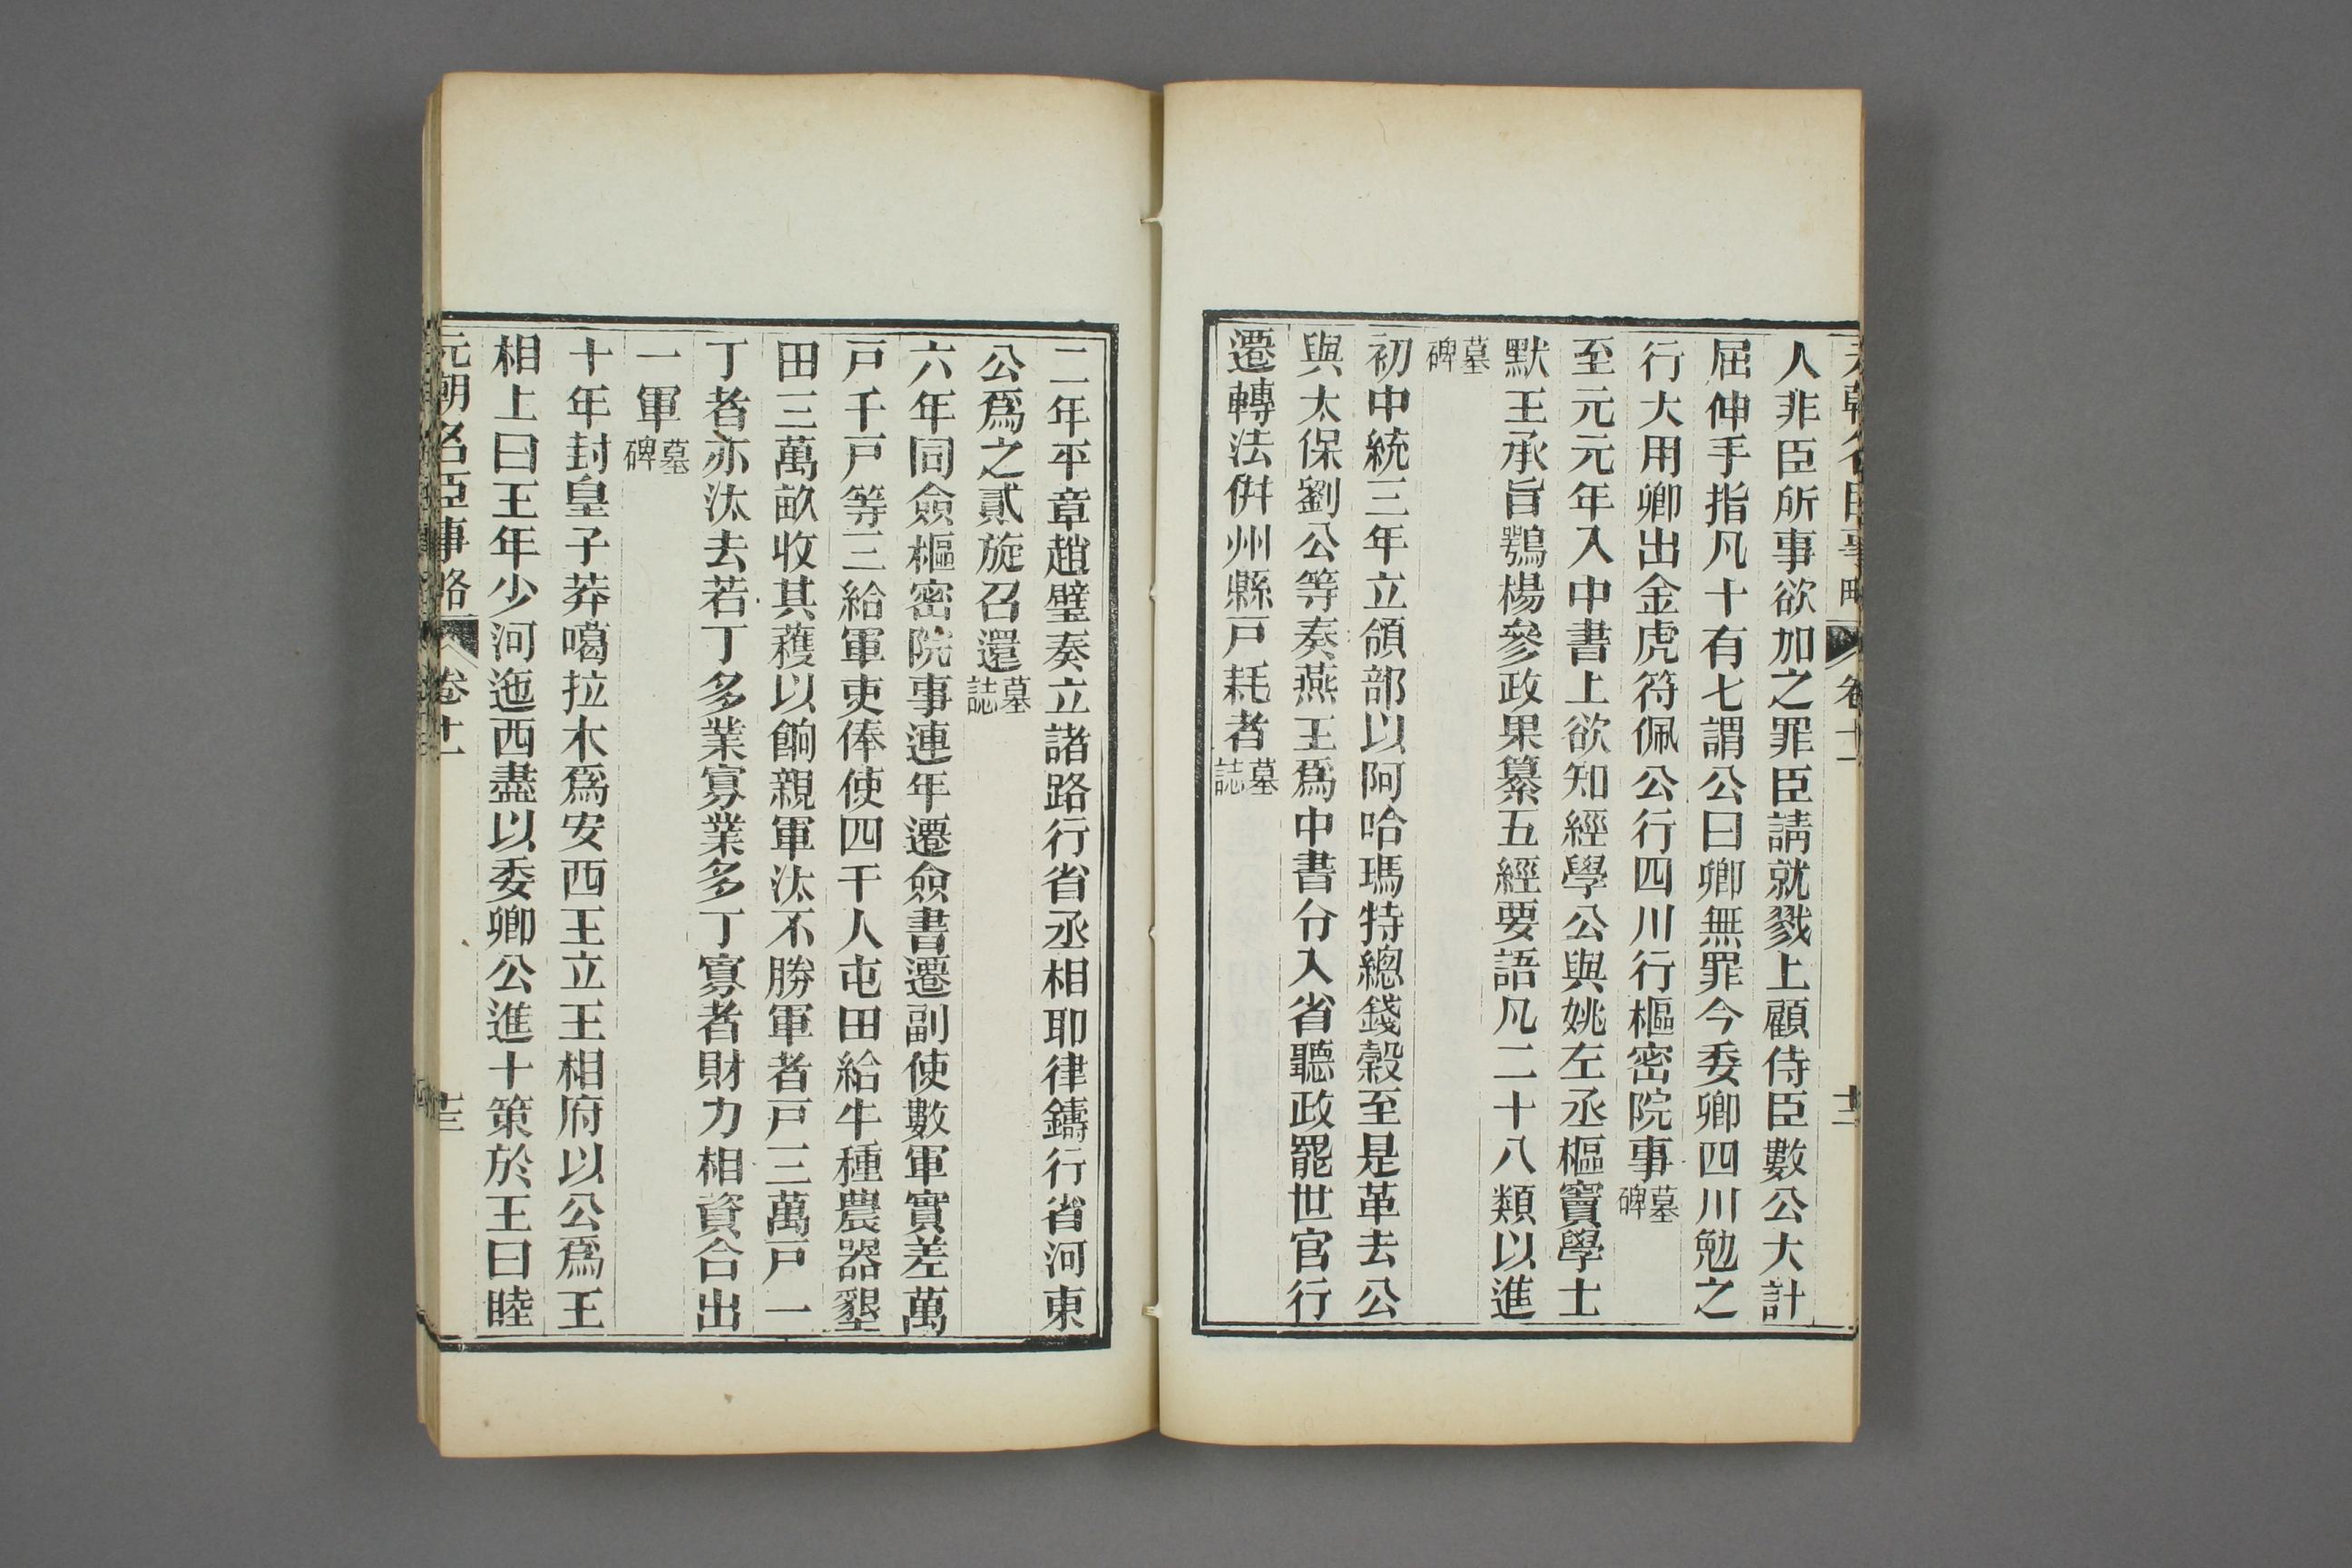 元朝名臣事略 卷十一 十二
人非臣所事欲加之罪臣請就戮上顧侍臣數公大計
屈伸手指凡十有七謂公曰卿無罪今委卿四川勉之
行大用卿出金虎符佩公行四川行樞密院事墓碑
至元元年入中書上欲知經學公與姚左丞樞竇學士
默王承旨鶚楊參政果纂五經要語凡二十八類以進
墓碑
初中統三年立領部以阿哈瑪特總錢穀至是革去公
與太保劉公等奏燕王爲中書分入省聽政罷世官行
遷轉法併州縣戸耗者墓誌
二年平章趙璧奏立諸路行省丞相耶律鑄行省河東
公爲之貳旋召還墓誌
六年同僉樞密院事連年遷僉書遷副使數軍實差萬
戸千戸等三給軍吏俸使四千人屯田給牛種農器墾
田三萬畝收其穫以餉親軍汰不勝軍者戸三萬戸一
丁者亦汰去若丁多業寡業多丁寡者財力相資合出
一軍墓碑
十年封皇子莽噶拉木爲安西王立王相府以公爲王
相上曰王年少河迤西盡以委卿公進十策於王曰睦
元朝名臣事略 卷十一 十三